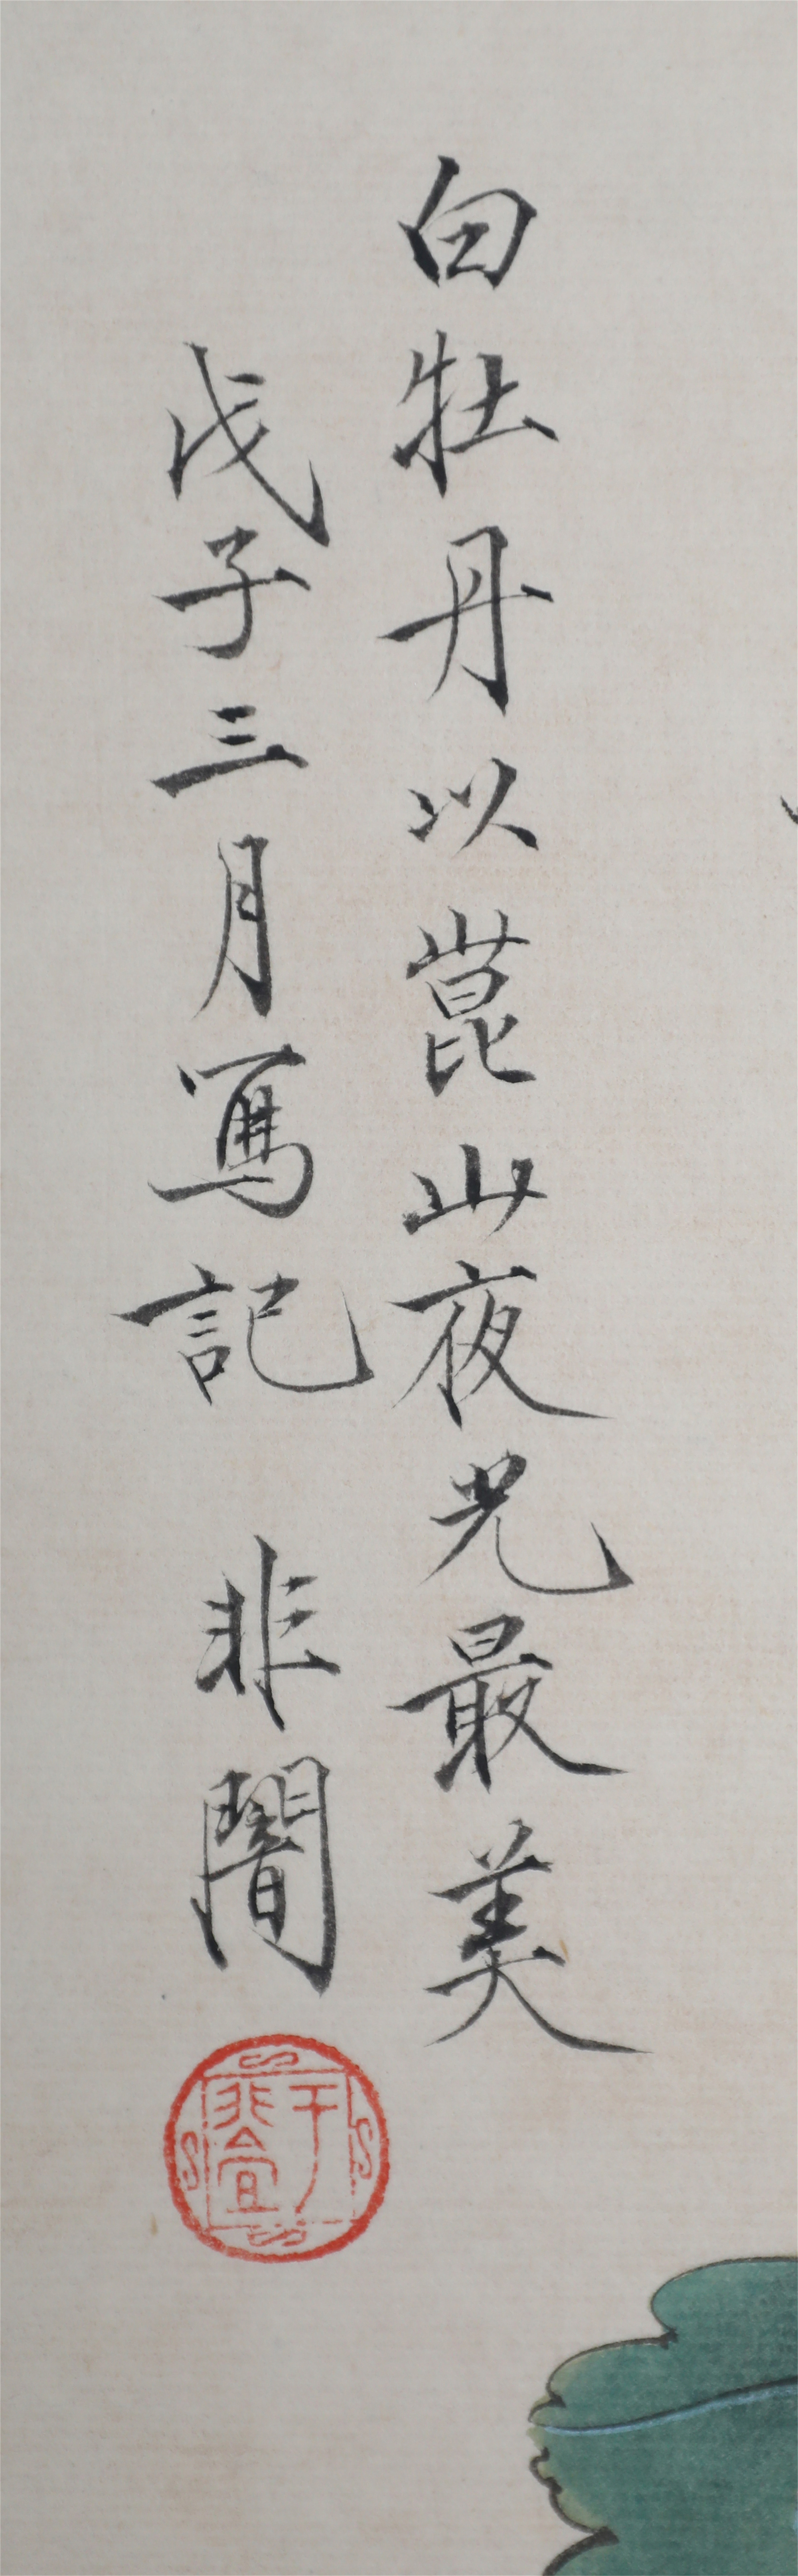 白牡丹以崑山夜光最美
戊子三月寫記 非闇
于非